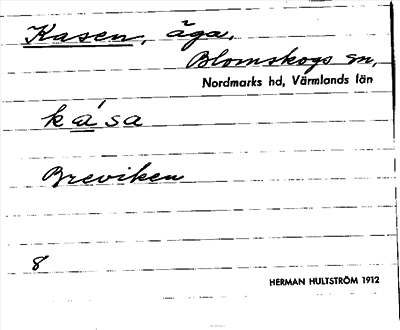 Kasen, äga,
Blomskogs sn,
Nordmarks hd, Värmlands län
ká̱sa
Breviken
8
HERMAN HULTSTRÖM 1912